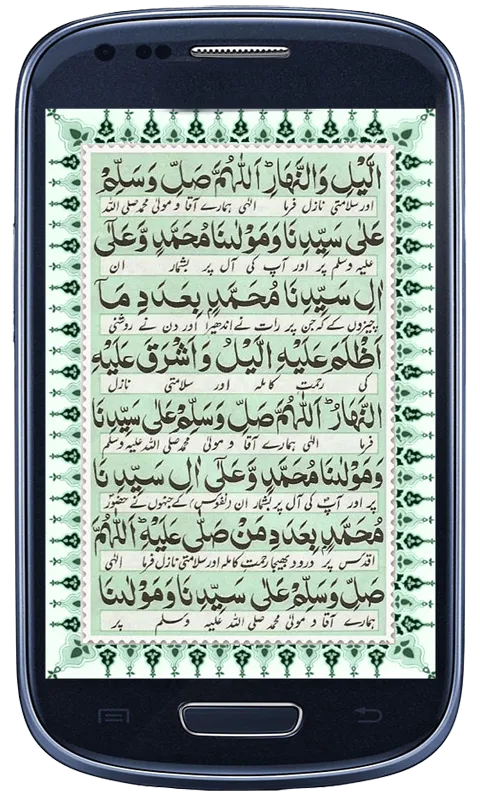 الَّيْلِ وَالنَّهَارِ ؕ اَللّٰهُمَّ صَلِّ وَسَلِّمْ
اور سلامتی نازل فرما الٰہی ہمارے آقا و مولیٰ محمد صلی اللہ
عَلٰی سَيِّدِنَا وَمَوْلٰنَا مُحَمَّدٍ وَّعَلٰٓی
علیہ وسلم پر اور آپ کی آل پر بشمار ان
اٰلِ سَيِّدِنَا مُحَمَّدٍ بِعَدَدِ مَآ
چیزوں کے کہ جن پر رات نے اندھیرا اور دن نے روشنی
اَظْلَمَ عَلَيْهِ الَّيْلُ وَاَشْرَقَ عَلَيْهِ
کی رحمت کاملہ اور سلامتی نازل
النَّهَارُ ؕ اَللّٰهُمَّ صَلِّ وَسَلِّمْ عَلٰی سَيِّدِنَا
فرما الٰہی ہمارے آقا و مولیٰ محمد صلی اللہ علیہ وسلم
وَمَوْلٰنَا مُحَمَّدٍ وَّعَلٰٓی اٰلِ سَيِّدِنَا
پر اور آپ کی آل پر بشمار ان (نفوس) کے جنہوں نے حضور
مُحَمَّدٍ بِعَدَدِ مَنْ صَلّٰی عَلَيْهِ ؕ اَللّٰهُمَّ
اقدس پر درود بھیجا رحمت کاملہ اور سلامتی نازل فرما الٰہی
صَلِّ وَسَلِّمْ عَلٰی سَيِّدِنَا وَمَوْلٰنَا
ہمارے آقا و مولیٰ محمد صلی اللہ علیہ وسلم پر